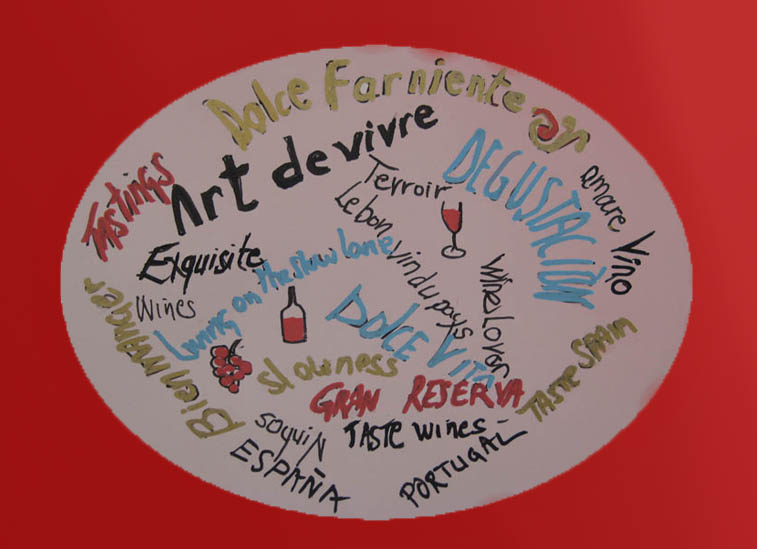 Dolce Farniente
Art de vivre
TASTINGS
Terroir
DEGUSTACIÓN
amare Vino
Le bon vin du pays
Exquisite
Wines
Living on the slow lane
Wine Lover
DOLCE VITA
Bien manger
Slowness
GRAN RESERVA
TASTE SPAIN
Vinhos
TASTE Wines
ESPAÑA
PORTUGAL